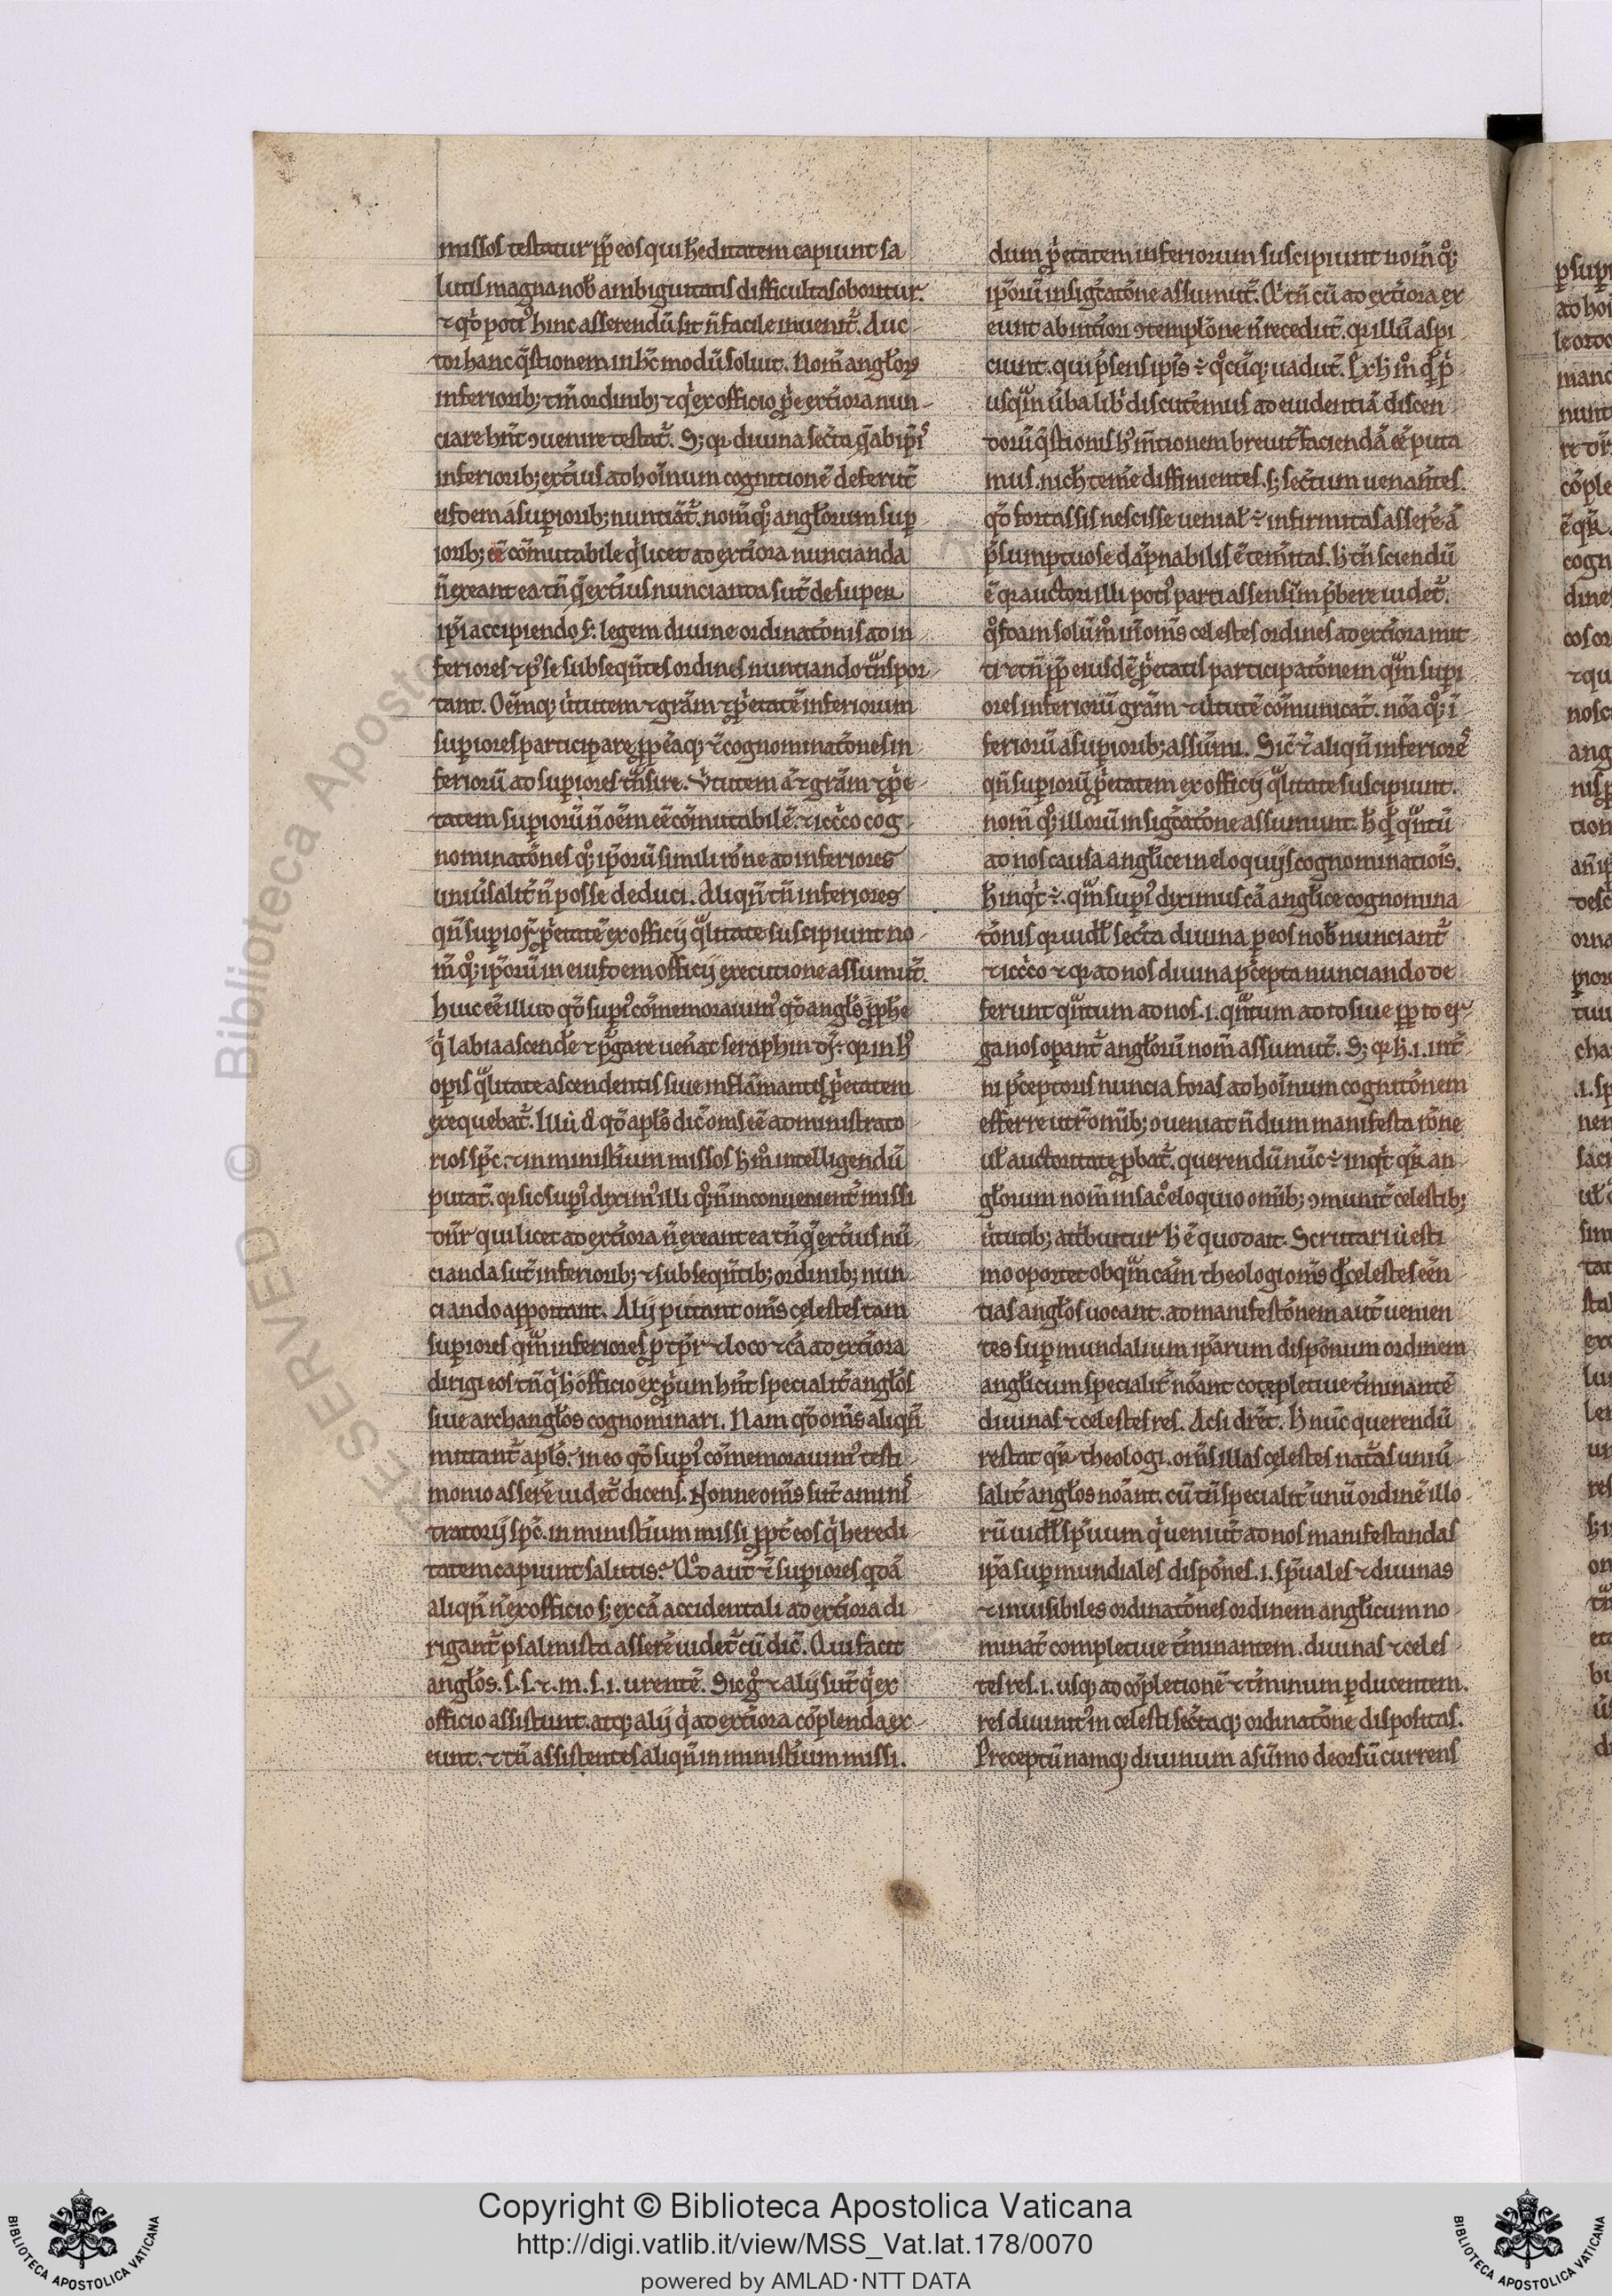 missos testatur ꝓp̄ eos qui h̄editatem capiunt sa
lutis magna nob̄ ambiguitatis difficultas oboritur.
⁊ qd̄ poti⁹ hinc asserendū sit n̄ facile inuenit᷑. Auc
tor hanc q̄stionem in hc̄ modū soluit. Nom̄ angl̓oꝝ
inferiorib; tm̄ ordinib; ⁊ q̇ ex officio ꝓ̄e ext̄iora nun
ciare hn̄t ꝯuenire testat᷑. S; qr diuina sec̄ta q̄ ab ip̄is
inferiorib; ext̄ius ad hoīnum cognitionē deferūt᷑
eisdem a suꝑiorib; nunciāt᷑. nom̄ q°; angl̓orum suꝑ
iorib; eē cōmutabile q̇ licet ad ext̄iora nuncianda
n̄ exeant ea tn̄ q̄ ext̄ius nuncianda sūt desuper
ip̄i accipiendo s. legem diuine ordinatōnis ad in
feriores ⁊ p⁹ se subseqn̄tes ordines nunciando tn̄spor
tant. Oēmq; ūtutem ⁊ grām ⁊ ꝓ̇etatē inferiorum
suꝑiores participare ꝓp̄ eaq; ⁊ cognominatōnes in
feriorū ad suꝑiores tn̄sire. V̄tutem ā ⁊ grām ⁊ ꝓ̇e
tatem suꝑiorū n̄ oēm eē cōmutabilē. ⁊ icc̄o cog
nominatōnes q°; ip̄orū simili rōne ad inferiores
uniūsalit̄ n̄ posse deduci. Aliqn̄ tn̄ inferiores
qn̄ suꝑioꝝ ꝓ̇etatē ex officij q̄litate suscipiunt no
m̄ q°; ip̄orū in eiusdem officij executione assumūt.
huic eē illud qd̄ sup̄ cōmemorauim⁹ qd̄ angl̓s ꝓph̄e
q̇ labia ascende᷑ ⁊ p̄gare ueneāt seraphin dr̄. qr in h⁹
oꝑis q̄litate ascendentis siue inflāmantis ꝓ̇etatem
exequebat᷑. Illud ꝟ qd̄ apl̓s dic̄ om̄s eē administrato
rios sp̄c. ⁊ in minist̄ium missos h̄ m° intelligendū
putat᷑. qr sic sup̄ diximⁱ illi q°; n̄ inconuenient̄ missi
dn̄r qui licet ad ext̄iora n̄ exeant ea tn̄ q̄ ext̄ius nū
cianda sūt inferiorib; ⁊ subseqn̄tib; ordinib; nun
ciando apportant. Alij putant om̄s celestes tam
suꝑiores qm̄ inferiores ꝓ tꝑ̄r ⁊ loco ⁊ cā ad ext̄iora
dirigi eos tn̄ q̇ h̄ officio ex ꝓ̇um hn̄t specialit̄ angl̓os
siue archangl̓os cognominari. Nam qd̄ om̄s aliqn̄
mittant᷑ apl̓s. in eo qd̄ sup̄ cōmemorauim⁹ testi
monio asserē uidet᷑ dicens. Nonne om̄s sūt aminis
tratorij sp̄c. in minist̄ium missi ꝓpt̄ eos q̇ heredi
tatem capiunt salutis? Qd̄ aūt ⁊ suꝑiores qdā
aliqn̄ n̄ ex officio s; ex cā accidentali ad ext̄iora di
rigant᷑ psalmista asserē uidet᷑ cū dic̄. Qui facit
angl̓os. s. s. ⁊. m. s. i. urentē. Sic gͦ ⁊ alij sūt q̇ ex
officio assistunt. atq; alij q̇ ad ext̄iora cōplenda ex
eunt. ⁊ tn̄ assistentes aliqn̄ in minist̄ium missi.
dum ꝓ̇etatem inferiorum suscipiunt nom̄ q°;
ip̄orū in sigc̄atōne assumūt. Q̇ tn̄ cū ad ext̄iora ex
eunt ab int̄iori ꝯtemplōne n̄ recedūt. qr illū aspi
ciunt. qui p̄sens ip̄is ÷ q°cūq; uadūt.
usq̄m ūba libri discutēmus ad euidentiā discen
dorū q̄stionis h⁹ m̄tionem breuit̄ faciendā eē puta
mus. nich̄ temē diffinientes. s; sec̄tum uenantes.
qd̄ fortassis nescisse uenial̓ ÷ infirmitas asserē ā
p̄sumptuose dāpnabilis ē temītas. h̄ tn̄ sciendū
ē qr auctori illi poti⁹ parti assensum p̄bere uidet᷑.
q̇sdam solūm° ꝟ om̄s celestes ordines ad ext̄iora mit
ti ⁊ tn̄ ꝓp̄ eiusdē ꝓ̇etatis participatōnem qm̄ suꝑi
ores inferiorū grām ⁊ ūtutē cōmunicāt. nōa q°; ī
feriorū a suꝑiorib; assūmi. Sic ⁊ aliqn̄ inferiores
qn̄ suꝑiorū ꝓ̇etatem ex officij q̄litate suscipiunt.
nom̄ q°; illorū in sigc̄atōne assumunt.
ad nos causa anglice in eloquijs cognominatiois.
h̄ inq̇t ÷. qm̄ sup̄ diximus cā anglice cognomina
tōnis qr uidl̓ sec̄ta diuina ꝑ eos nob̄ nunciant᷑
⁊ icc̄o ⁊ qr ad nos diuina p̄cepta nunciando de
ferunt qn̄tum ad nos. i. qn̄tum ad id siue ꝓp̄ id er
ga nos oꝑant᷑ angl̓orū nom̄ assumūt. S; qr h̄. i. int̄
ni p̄ceptoris nuncia foras ad hoīnum cognitōnem
efferre utrū omīb; ꝯueniat n̄dum manifesta rōne
ul̓ auctoritate ꝓbat᷑. querendū nūc ÷ inq̇t qr̄ an
gl̓orum nom̄ in sac̄° eloquio omīb; ꝯmunit̄ celestib;
ūtutib; att̄buitur h̄ ē quod ait. Scrutari ū esti
mo oportet ob qm̄ cām theologi om̄s celestes eēn
tias angl̓os uocant. ad manifestōnem aūt uenien
tes suꝑmundalium ip̄arum dispōnum ordinem
anglicum specialit̄ nōant cōpletiue t̄minantē
diuinas ⁊ celestes res. Acsi dic̄et. h̄ nūc querendū
restat qr̄ theologi. om̄s illas celestes naturas uniū
salit̄ angl̓os nōant. cū tn̄ specialit̄ unū ordinē illo
rū uidl̓ sp̄uum q̇ ueniūt ad nos manifestandas
ip̄a suꝑmundiales dispōnes. i. sp̄uales ⁊ diuinas
⁊ inuisibiles ordinatōnes ordinem anglicum no
minat̄ completiue t̄minantem. diuinas ⁊ celes
tes res. i. usq; ad cōpletionē ⁊ t̄minum ꝑducentem.
res diuinit̄ in celesti sec̄taq; ordinatōne dispositas.
Preceptū namq; diuinum a sūmo deorsū currens
Copyright © Biblioteca Apostolica Vaticana
http://digi.vatlib.it/view/MSS_Vat.lat.178/0070
powered by AMLAD·NTT DATA